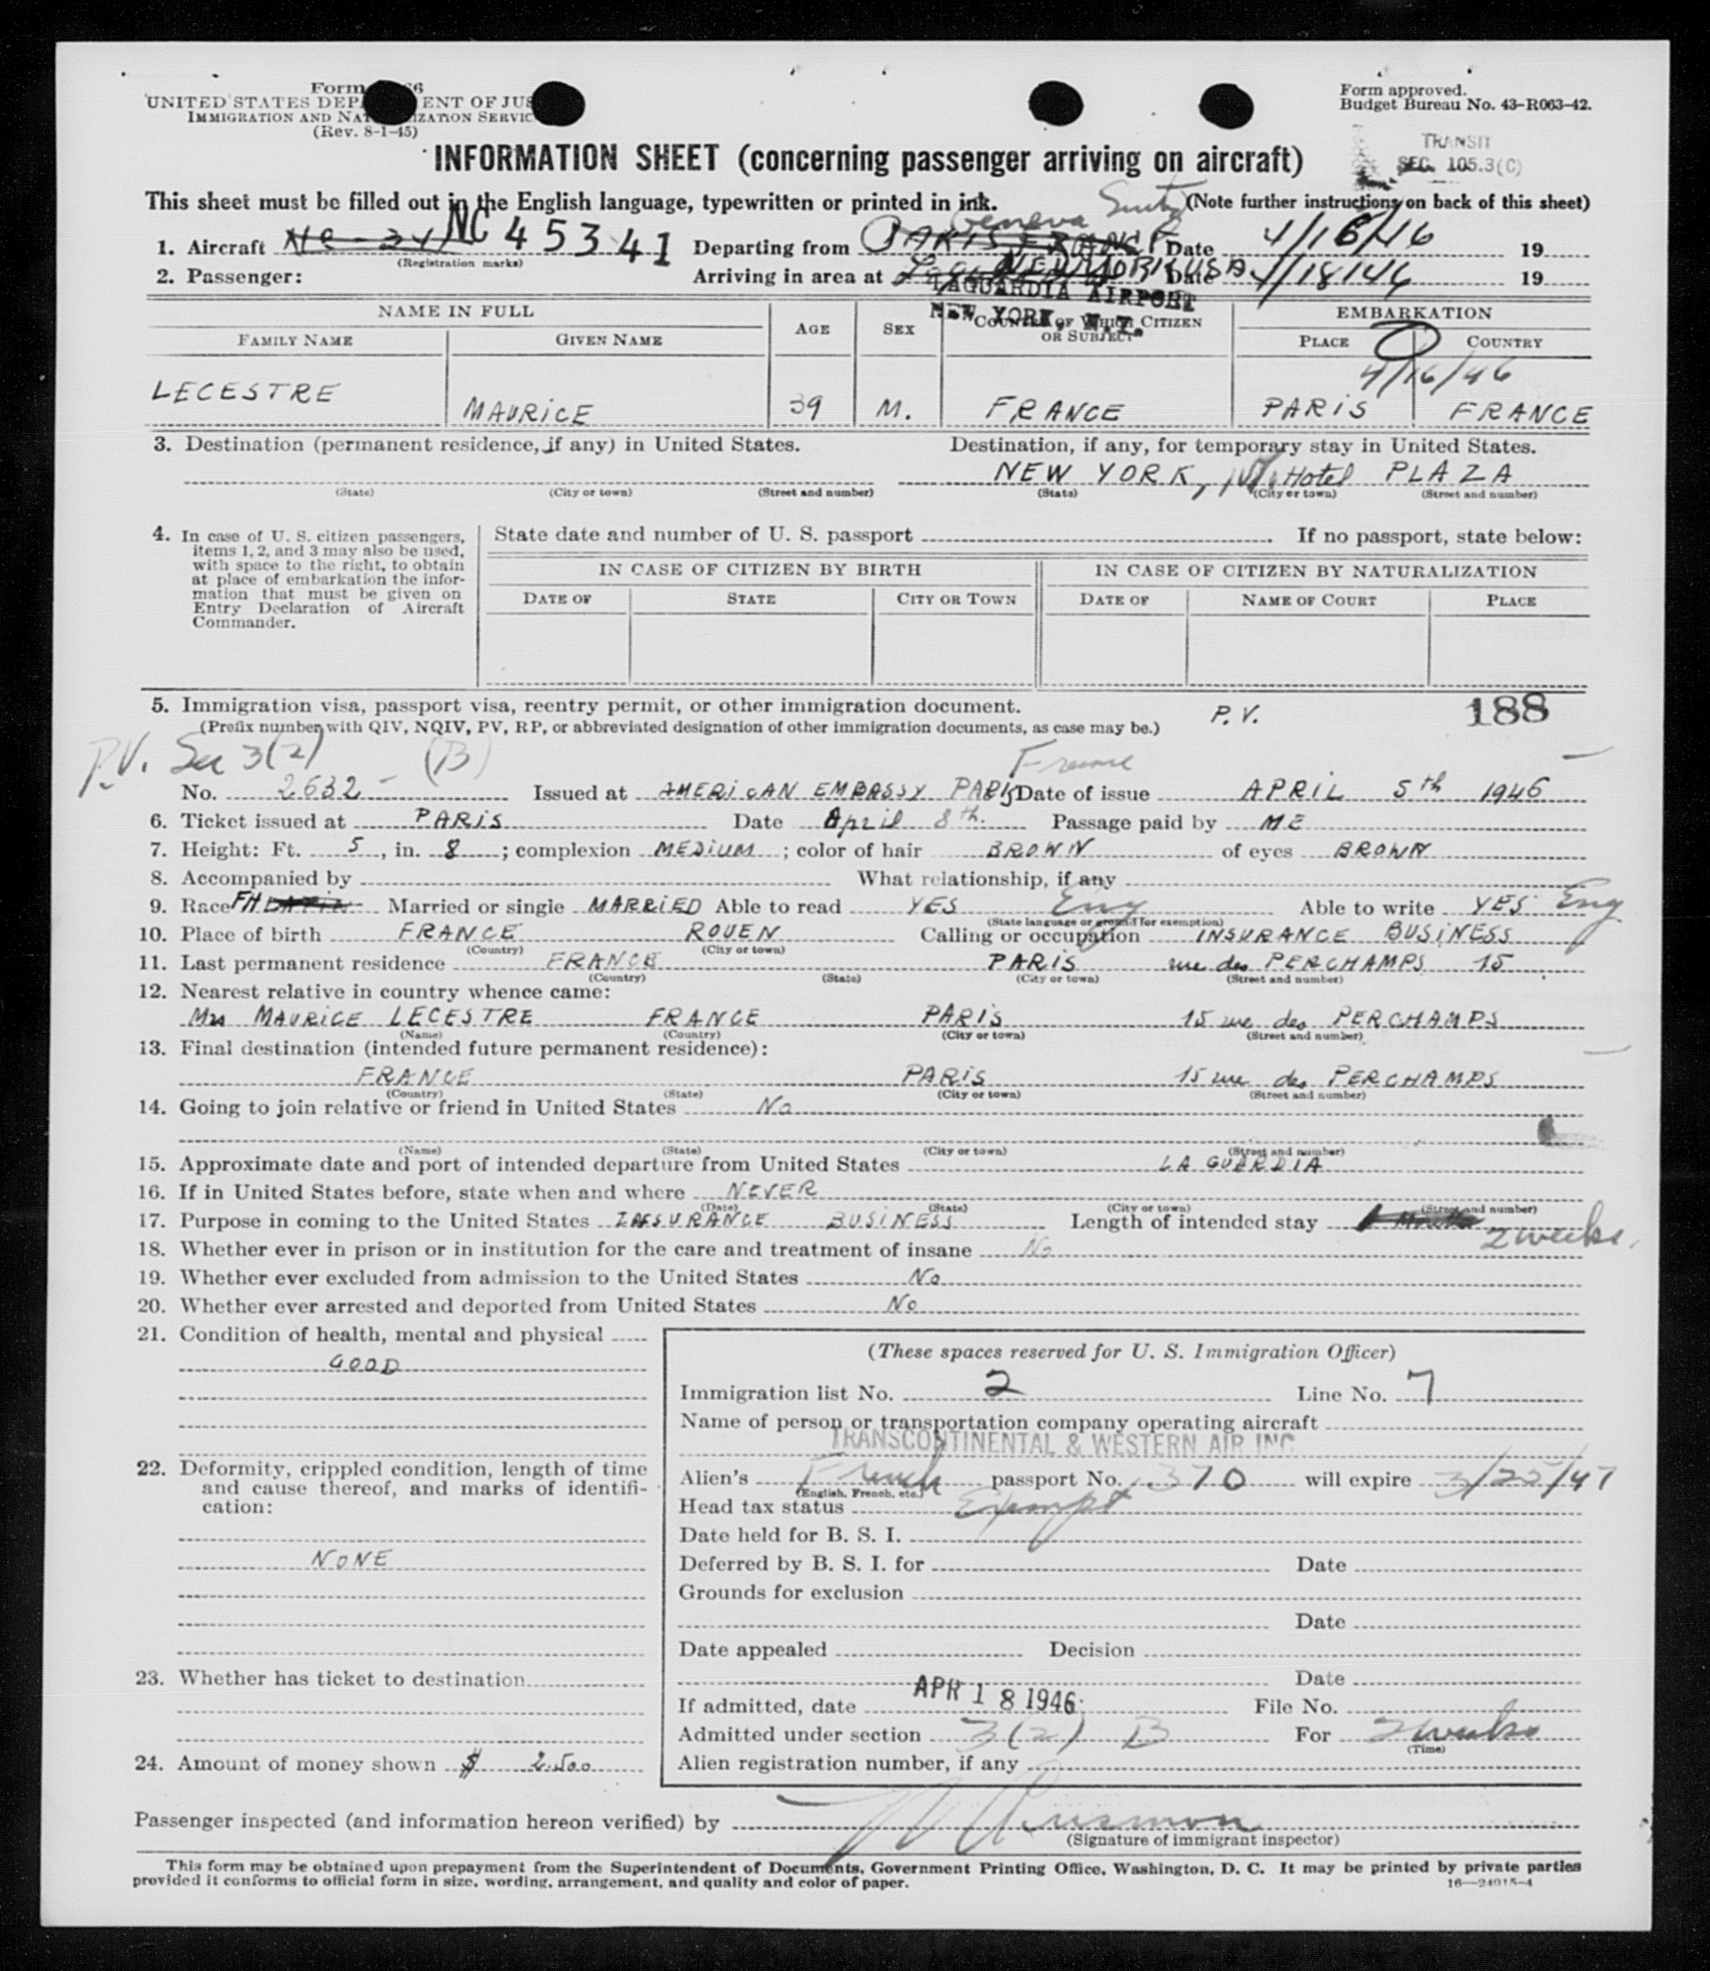 Form
UNITED STATES DEP ENT OF JUS
IMMIGRATION AND NAT IZATION SERVIC
(Rev. 8-1-45)
Form approved.
Budget Bureau No. 43-R063-42.
TRANSIT
SEC. 105.3(C)
INFORMATION SHEET (concerning passenger arriving on aircraft)
This sheet must be filled out in the English language, typewritten or printed in ink. (Note further instructions on back of this sheet)
Geneva
1. Aircraft NC 45341 Departing from PARIS FRANCE Date 4/16/46 19
(Registration marks)
2. Passenger: Arriving in area at NEW YORK USA Date 4/18/46 19
LAGUARDIA AIRPORT
NEW YORK, N.Y.
NAME IN FULL AGE SEX COUNTRY OF WHICH CITIZEN OR SUBJECT EMBARKATION
FAMILY NAME GIVEN NAME PLACE COUNTRY
4/16/46
LECESTRE MAURICE 39 M. FRANCE PARIS FRANCE
3. Destination (permanent residence, if any) in United States. Destination, if any, for temporary stay in United States.
NEW YORK, Hotel PLAZA
(State) (City or town) (Street and number) (State) (City or town) (Street and number)
4. In case of U. S. citizen passengers, items 1, 2, and 3 may also be used, with space to the right, to obtain at place of embarkation the information that must be given on Entry Declaration of Aircraft Commander.
State date and number of U. S. passport . If no passport, state below:
IN CASE OF CITIZEN BY BIRTH IN CASE OF CITIZEN BY NATURALIZATION
DATE OF STATE CITY OR TOWN DATE OF NAME OF COURT PLACE
5. Immigration visa, passport visa, reentry permit, or other immigration document. P.V. 188
(Prefix number with QIV, NQIV, PV, RP, or abbreviated designation of other immigration documents, as case may be.)
P.V. Sec 3(2) (B) France
No. 2632 Issued at AMERICAN EMBASSY PARIS Date of issue APRIL 5th 1946
6. Ticket issued at PARIS Date April 8th. Passage paid by ME
7. Height: Ft. 5, in. 8; complexion MEDIUM; color of hair BROWN of eyes BROWN
8. Accompanied by What relationship, if any
9. Race FH LATIN Married or single MARRIED Able to read YES Eng Able to write YES Eng
(State language or ground for exemption)
10. Place of birth FRANCE ROUEN Calling or occupation INSURANCE BUSINESS
(Country) (City or town)
11. Last permanent residence FRANCE PARIS rue des PERCHAMPS 15
(Country) (State) (City or town) (Street and number)
12. Nearest relative in country whence came:
Mrs MAURICE LECESTRE FRANCE PARIS 15 rue des PERCHAMPS
(Name) (Country) (City or town) (Street and number)
13. Final destination (intended future permanent residence):
FRANCE PARIS 15 rue des PERCHAMPS
(Country) (State) (City or town) (Street and number)
14. Going to join relative or friend in United States No
(Name) (State) (City or town) (Street and number)
15. Approximate date and port of intended departure from United States LA GUARDIA
16. If in United States before, state when and where NEVER
(Date) (State) (City or town) (Street and number)
17. Purpose in coming to the United States INSURANCE BUSINESS Length of intended stay 2 weeks.
18. Whether ever in prison or in institution for the care and treatment of insane No
19. Whether ever excluded from admission to the United States No
20. Whether ever arrested and deported from United States No
21. Condition of health, mental and physical
GOOD
22. Deformity, crippled condition, length of time and cause thereof, and marks of identification:
NONE
23. Whether has ticket to destination
24. Amount of money shown $ 2.500
(These spaces reserved for U. S. Immigration Officer)
Immigration list No. 2 Line No. 7
Name of person or transportation company operating aircraft
TRANSCONTINENTAL & WESTERN AIR INC
Alien's French passport No. 370 will expire 3/25/47
(English, French, etc.)
Head tax status Exempt
Date held for B. S. I.
Deferred by B. S. I. for Date
Grounds for exclusion
Date
Date appealed Decision
Date
If admitted, date APR 18 1946 File No.
Admitted under section 3(2) B For 2 weeks
(Time)
Alien registration number, if any
Passenger inspected (and information hereon verified) by
(Signature of immigrant inspector)
This form may be obtained upon prepayment from the Superintendent of Documents, Government Printing Office, Washington, D. C. It may be printed by private parties
provided it conforms to official form in size, wording, arrangement, and quality and color of paper. 16—24015-4